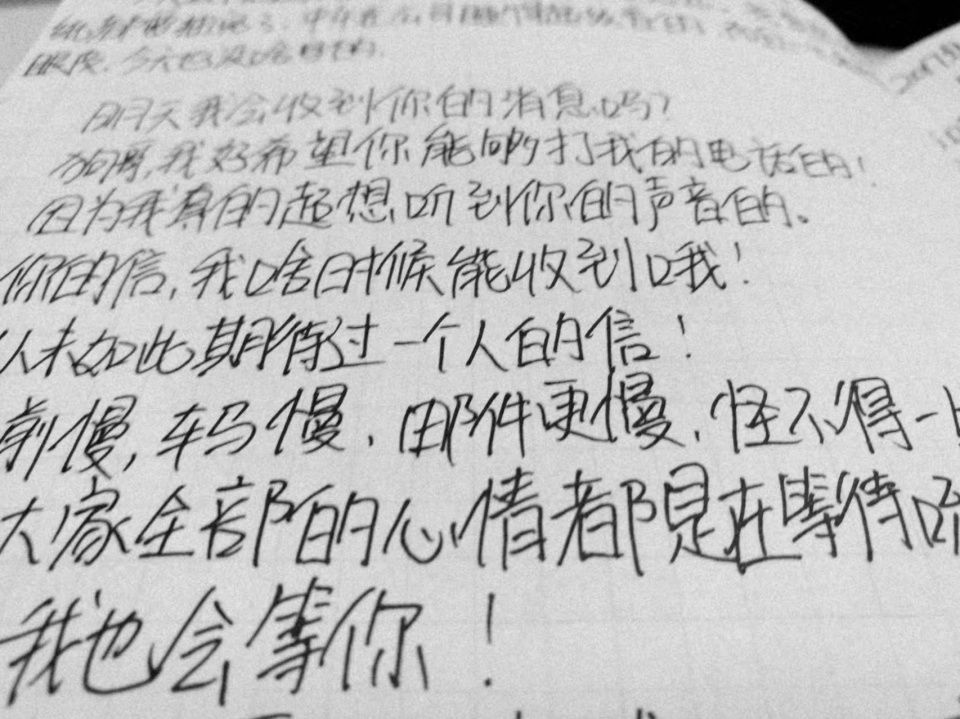 眼皮,今天也没啥目的.
明天我会收到你的消息吗?
狗哥,我好希望你能够打我的电话的!
因为我真的超想听到你的声音的。
你的信,我啥时候能收到哦!
从未如此期待过一个人的信!
前慢,车马慢,邮件更慢,怪不得一
大家全部的心情都是在等待
我也会等你!